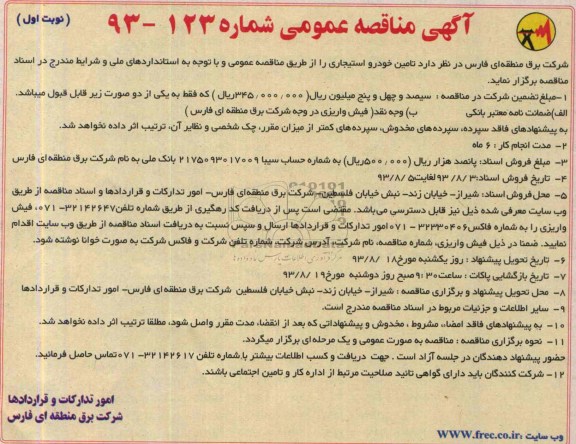 آگهی مناقصه عمومی شماره ۱۲۳ -۹۳
( نوبت اول )
شرکت برق منطقه‌ای فارس در نظر دارد تامین خودرو استیجاری را از طریق مناقصه عمومی و با توجه به استانداردهای ملی و شرایط مندرج در اسناد
مناقصه برگزار نماید.
۱-مبلغ تضمین شرکت در مناقصه : سیصد و چهل و پنج میلیون ریال( ۳۴۵/۰۰۰/۰۰۰ریال ) که فقط به یکی از دو صورت زیر قابل قبول میباشد.
الف)ضمانت نامه معتبر بانکی ب) وجه نقد( فیش واریزی در وجه شرکت برق منطقه ای فارس )
به پیشنهادهای فاقد سپرده، سپرده‌های مخدوش، سپرده‌های کمتر از میزان مقرر، چک شخصی و نظایر آن، ترتیب اثر داده نخواهد شد.
۲- مدت انجام کار : ۶ ماه
۳- مبلغ فروش اسناد: پانصد هزار ریال (۵۰۰/۰۰۰ریال) به شماره حساب سیبا ۲۱۷۵۰۹۳۰۱۷۰۰۹ بانک ملی به نام شرکت برق منطقه‌ای فارس
۴- تاریخ فروش اسناد:۹۳/۸/۳ لغایت۹۳/۸/۵
۵- محل فروش اسناد: شیراز- خیابان زند- نبش خیابان فلسطین- شرکت برق منطقه‌ای فارس- امور تدارکات و قراردادها و اسناد مناقصه از طریق
وب سایت معرفی شده ذیل نیز قابل دسترسی می‌باشد. مقتضی است پس از دریافت کد رهگیری از طریق شماره تلفن۳۲۱۴۲۶۴۷-۰۷۱، فیش
واریزی را به شماره فاکس۳۲۳۳۰۴۰۶-۰۷۱ امور تدارکات و قراردادها ارسال و سپس نسبت به دریافت اسناد مناقصه از طریق وب سایت اقدام
نمایید. ضمنا در ذیل فیش واریزی، شماره مناقصه، نام شرکت، آدرس شرکت، شماره تلفن شرکت و فاکس شرکت به صورت خوانا نوشته شود.
۶- تاریخ تحویل پیشنهاد : روز یکشنبه مورخ۹۳/۸/۱۸
۷- تاریخ بازگشایی پاکات : ساعت۹:۳۰صبح روز دوشنبه مورخ۹۳/۸/۱۹
۸- محل تحویل پیشنهاد و برگزاری مناقصه : شیراز- خیابان زند- نبش خیابان فلسطین شرکت برق منطقه‌ای فارس- امور تدارکات و قراردادها
۹- سایر اطلاعات و جزئیات مربوط در اسناد مناقصه مندرج است.
۱۰- به پیشنهادهای فاقد امضاء، مشروط ، مخدوش و پیشنهاداتی که بعد از انقضاء مدت مقرر واصل شود، مطلقا ترتیب اثر داده نخواهد شد.
۱۱- نحوه برگزاری مناقصه : مناقصه به صورت عمومی و یک مرحله‌ای برگزار میگردد.
حضور پیشنهاد دهندگان در جلسه آزاد است . جهت دریافت و کسب اطلاعات بیشتر با شماره تلفن ۳۲۱۴۲۶۱۷-۰۷۱ تماس حاصل فرمائید.
۱۲- شرکت کنندگان باید دارای گواهی تائید صلاحیت مرتبط از اداره کار و تامین اجتماعی باشند.
امور تدارکات و قراردادها
شرکت برق منطقه ای فارس
وب سایت :WWW.frec.co.ir